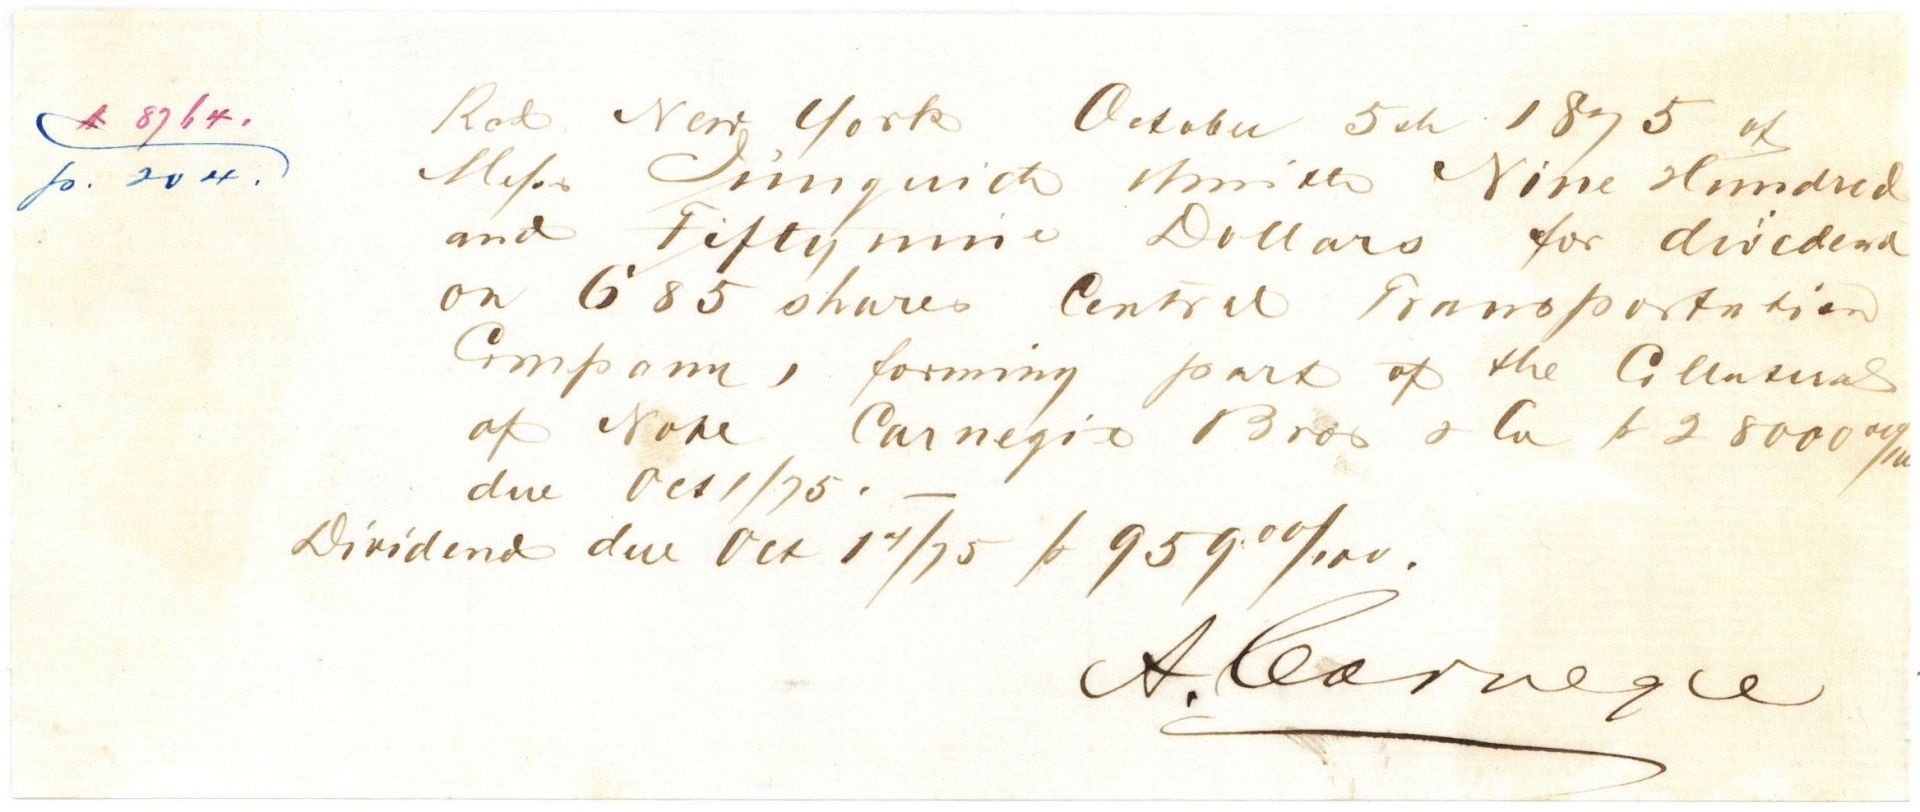 A 8764.
p. 204.
Recd New York October 5th 1875 of
Messrs Smith Nine Hundred
and Fifty nine Dollars for dividend
on 685 shares Central Transportation
Company, forming part of the Collateral
of Note Carnegie Bros & Co $28000 00/100
due Oct 1/75. —
Dividend due Oct 17/75 $959.00/100.
A. Carnegie